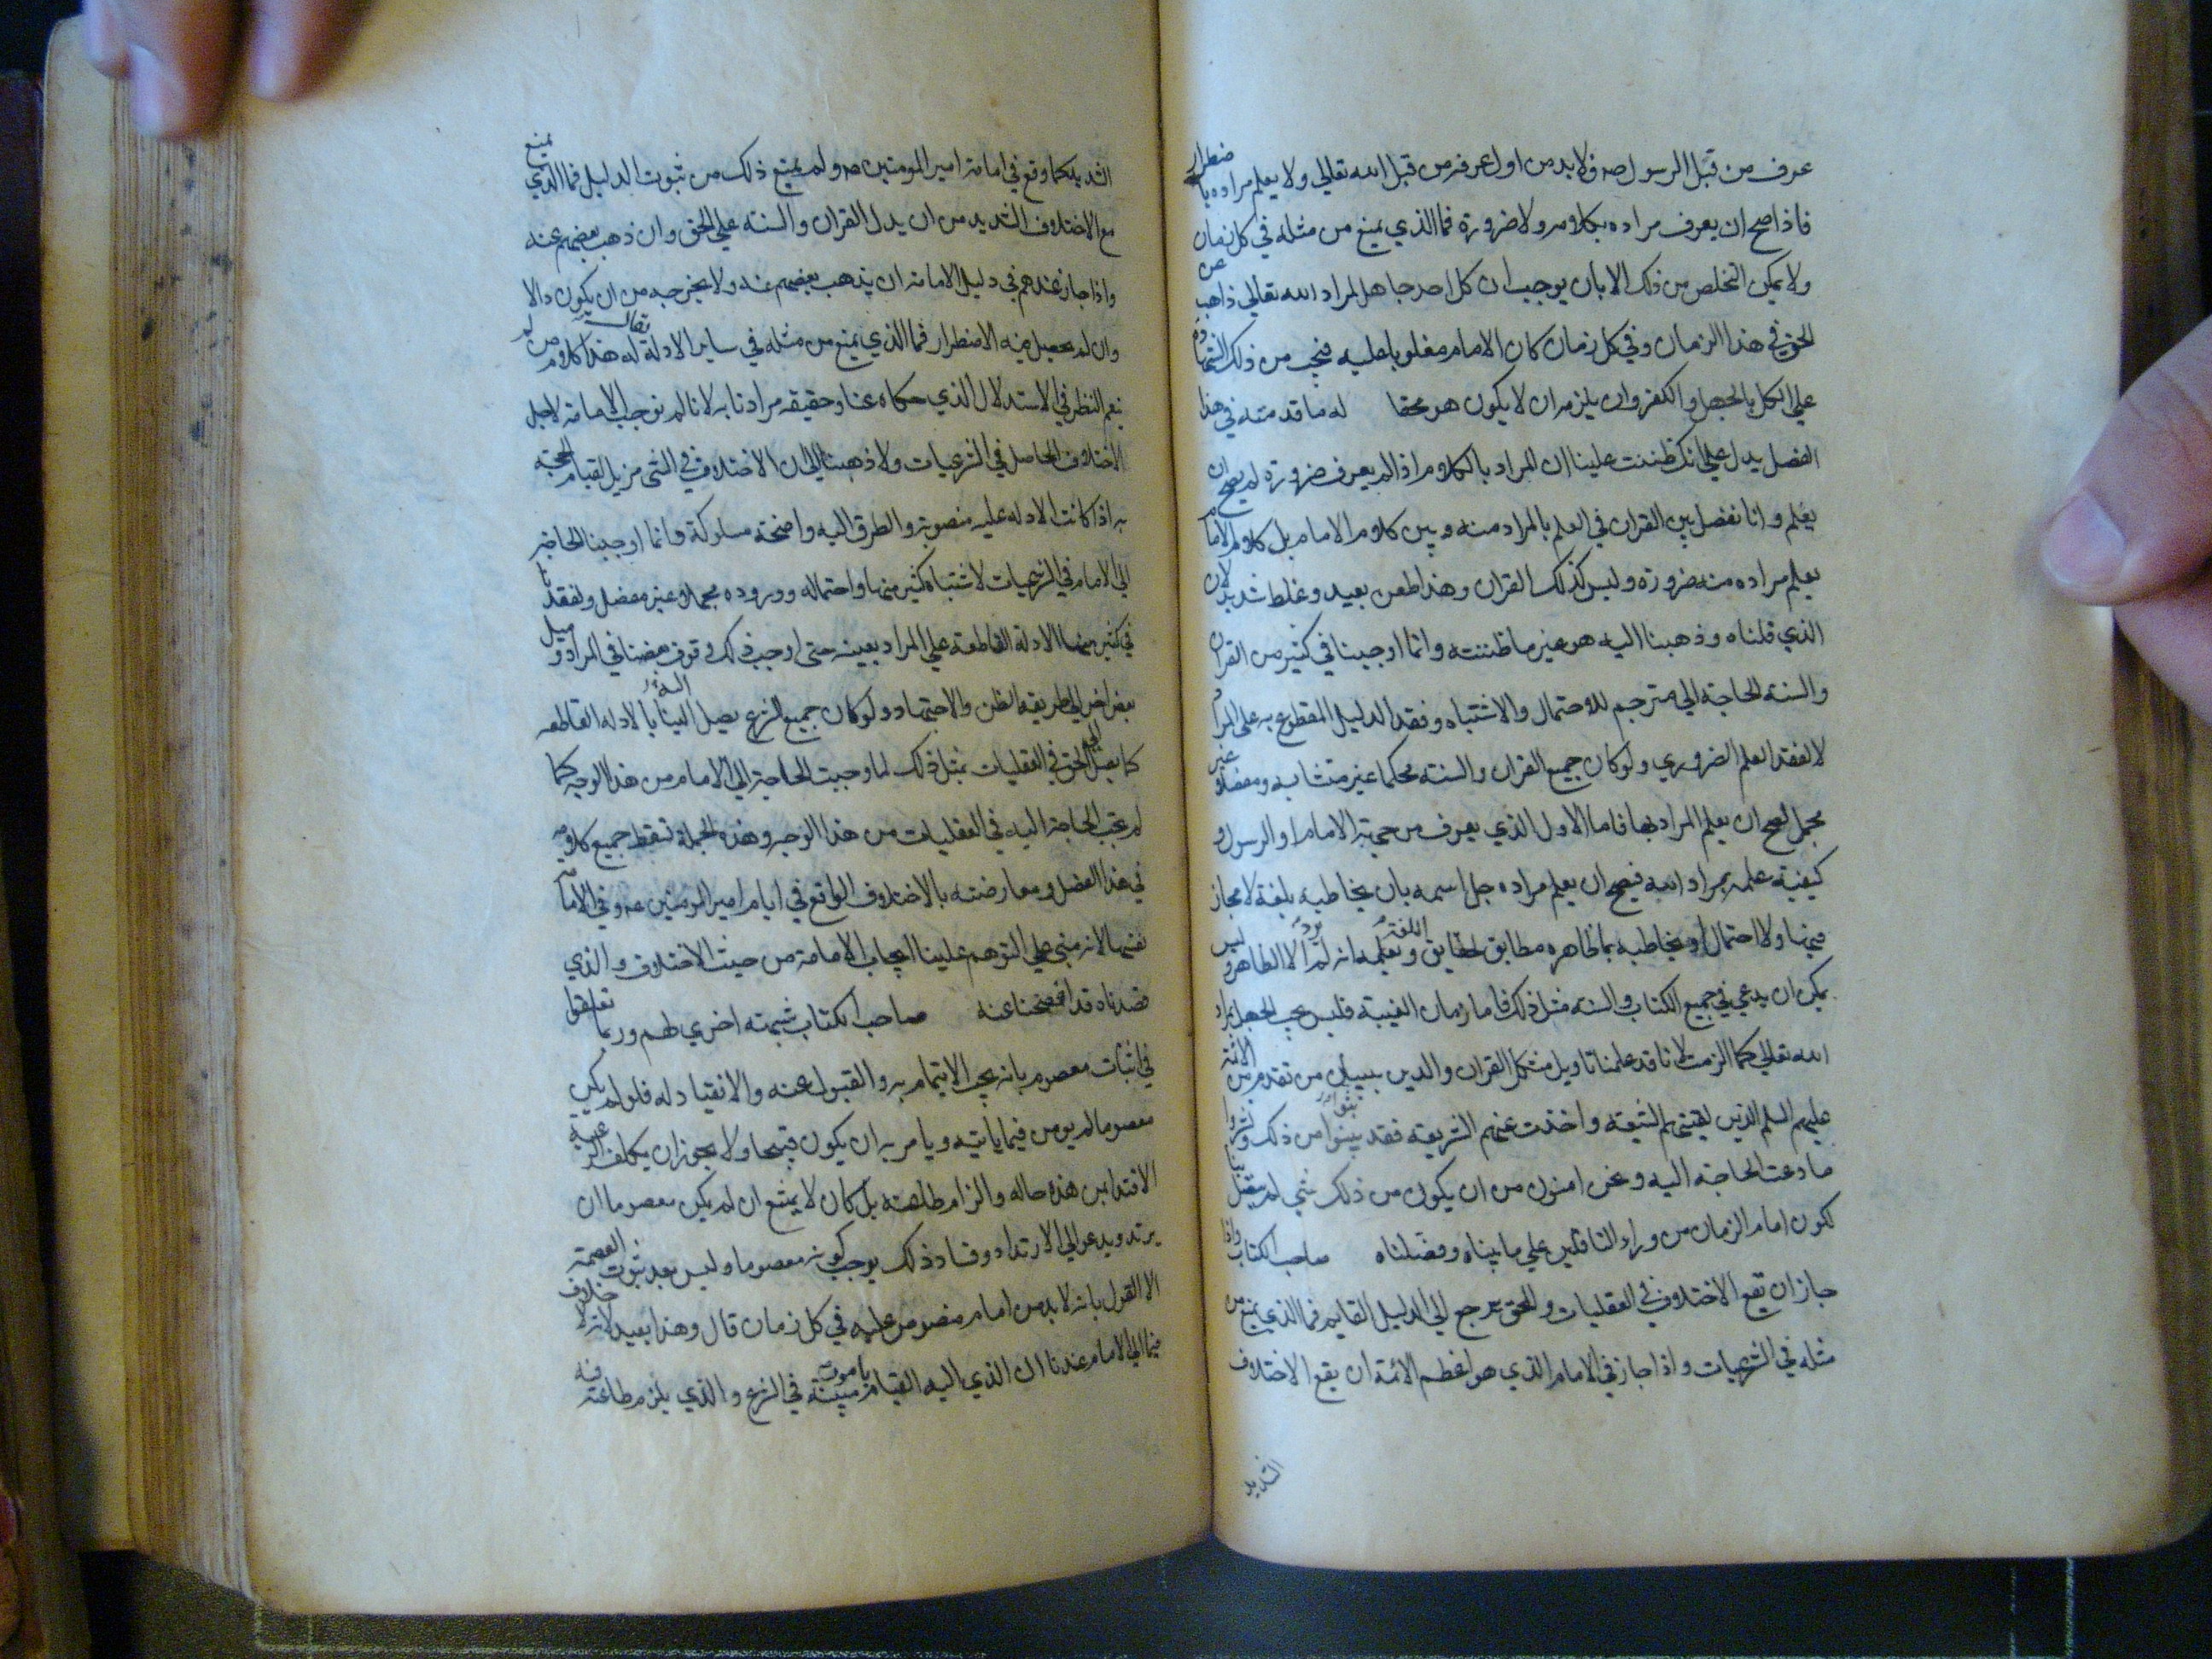 عرف من قبل الرسول صه فلا بد من اول عرفه من قبل الله تعالي ولا يعلم مراده باضطرار
فاذا صح ان يعرف مراده بكلامه ولا ضرورة فما الذي يمنع من مثله في كل زمان
ولا يمكن التخلص من ذلك الا بان يوجب ان كل احد جاهل لمراد الله تعالي ذاهب عن
الحق في هذا الزمان وفي كل زمان كان الامام مغلوبا عليه فيجب من ذلك الشهادة
علي الكل بالجهل والكفر وان يلزمه ان لا يكون هو محقا له ما قدمته في هذا
الفصل يدل علي انك ظننت علينا ان المراد بالكلام اذا لم يعرف ضرورة لم يصح ان
يعلم وانا نفصل بين القران في العلم بالمراد منه وبين كلام الامام بل كلام الامام
يعلم مراده منه ضرورة وليس كذلك القران وهذا طعن بعيد وغلط شديد لان
الذي قلناه وذهبنا اليه هو غير ما ظننته وانما اوجبنا في كثير من القران
والسنة الحاجة الي مترجم للاحتمال والاشتباه وفقد الدليل المقطوع به علي المراد
لا لفقد العلم الضروري ولو كان جميع القران والسنة محكما غير متشابه ومفصلا غير
مجمل لصح ان يعلم المراد بها فاما الاول الذي يعرف من جهته الامام او الرسول و
كيفية علمه بمراد الله فيصح ان يعلم مراده جل اسمه بان يخاطبه بلغة لا مجاز
فيها ولا احتمال او يخاطبه بما ظاهره مطابق لحقايق اللغة ويعلمه انه لم يرد الا الظاهر وليس
يمكن ان يدعي في جميع الكتاب والسنة مثل ذلك فاما زمان الغيبة فليس يجب الجهل بمراد
الله تعالي كما الزمت لانا قد علمنا تاويل مشكل القران والدين ببيان من تقدم من الائمة
عليهم السلم الذين لقيتهم الشيعة واخذت عنهم الشريعة فقد بينوا من ذلك ونشروا
ما دعت الحاجة اليه ونحن امنون من ان يكون من ذلك شي لم يتصل بنا
لكون امام الزمان من وراء الناقلين علي ما بيناه وفصلناه صاحب الكتاب واذا
جاز ان يقع الاختلاف في العقليات والمحق يرجع الي الدليل القايم فما الذي يمنع من
مثله في الشرعيات واذا جاز في الامام الذي هو اعظم الائمة ان يقع الاختلاف
الشديد
الشديد كما وقع في امامة امير المومنين صه ولم يمنع ذلك من ثبوت الدليل فما الذي يمنع
مع الاختلاف الشديد من ان يدل القران والسنة علي الحق وان ذهب بعضهم عنه
واذا جاز عندهم في دليل الامامة ان يذهب بعضهم عنه ولا يخرجه من ان يكون دالا
وان لم يحصل فيه الاضطرار فما الذي يمنع من مثله في ساير الادلة يقال له هذا كلام من لم
ينعم النظر في الاستدلال الذي حكاه عنا وحقيقة مرادنا به لانا لم نوجب الامامة لاجل
الاختلاف الحاصل في الشرعيات ولا ذهبنا الي ان الاختلاف في الشي مزيل لقيام الحجة
به اذا كانت الادلة عليه منصوبة والطرق اليه واضحة مسلوكة وانما اوجبنا الحاجة
الي الامام في الشرعيات لاشتباه كثير منها واحتماله ووروده مجملا غير مفصل ولفقدنا
في كثير منها الادلة القاطعة علي المراد بعينه حتي اوجب ذلك وقوف بعضنا في المراد وميل
بعض اخر الي طريقة الظن والاجتهاد ولو كان جميع الشرع يصل الينا بالادلة القاطعة
كما يصل الي الحق في العقليات بمثل ذلك لما وجبت الحاجة الي الامام من هذا الوجه كما
لم تجب الحاجة اليه في العقليات من هذا الوجه وهذه الجملة تسقط جميع كلامه
في هذا الفصل ومعارضته بالاختلاف الواقع في ايام امير المومنين عه وفي الامامة
نفسها لانه مبني علي التوهم علينا ايجاب الامامة من حيث الاختلاف والذي
قصدناه قد افصحنا عنه صاحب الكتاب شبهة اخري لهم وربما تعلقوا
في اثبات معصوم بانه يجب الايتمام به والقبول عنه والانقياد له فلو لم يكن
معصوما لم يومن فيما ياتيه ويامر به ان يكون قبيحا ولا يجوز ان يكلف الرعية
الاقتدا بمن هذه حاله والزام طاعته بل كان لا يمتنع ان لم يكن معصوما ان
يرتد ويدعو الي الارتداد وفساد ذلك يوجب كونه معصوما وليس بعد ثبوت العصمة
الا القول بانه لا بد من امام منصوص عليه في كل زمان قال وهذا بعيد لانه لا خلاف
فيما الي الامام عندنا ان الذي اليه القيام بامور مبينة في الشرع والذي يلزم طاعته فيه